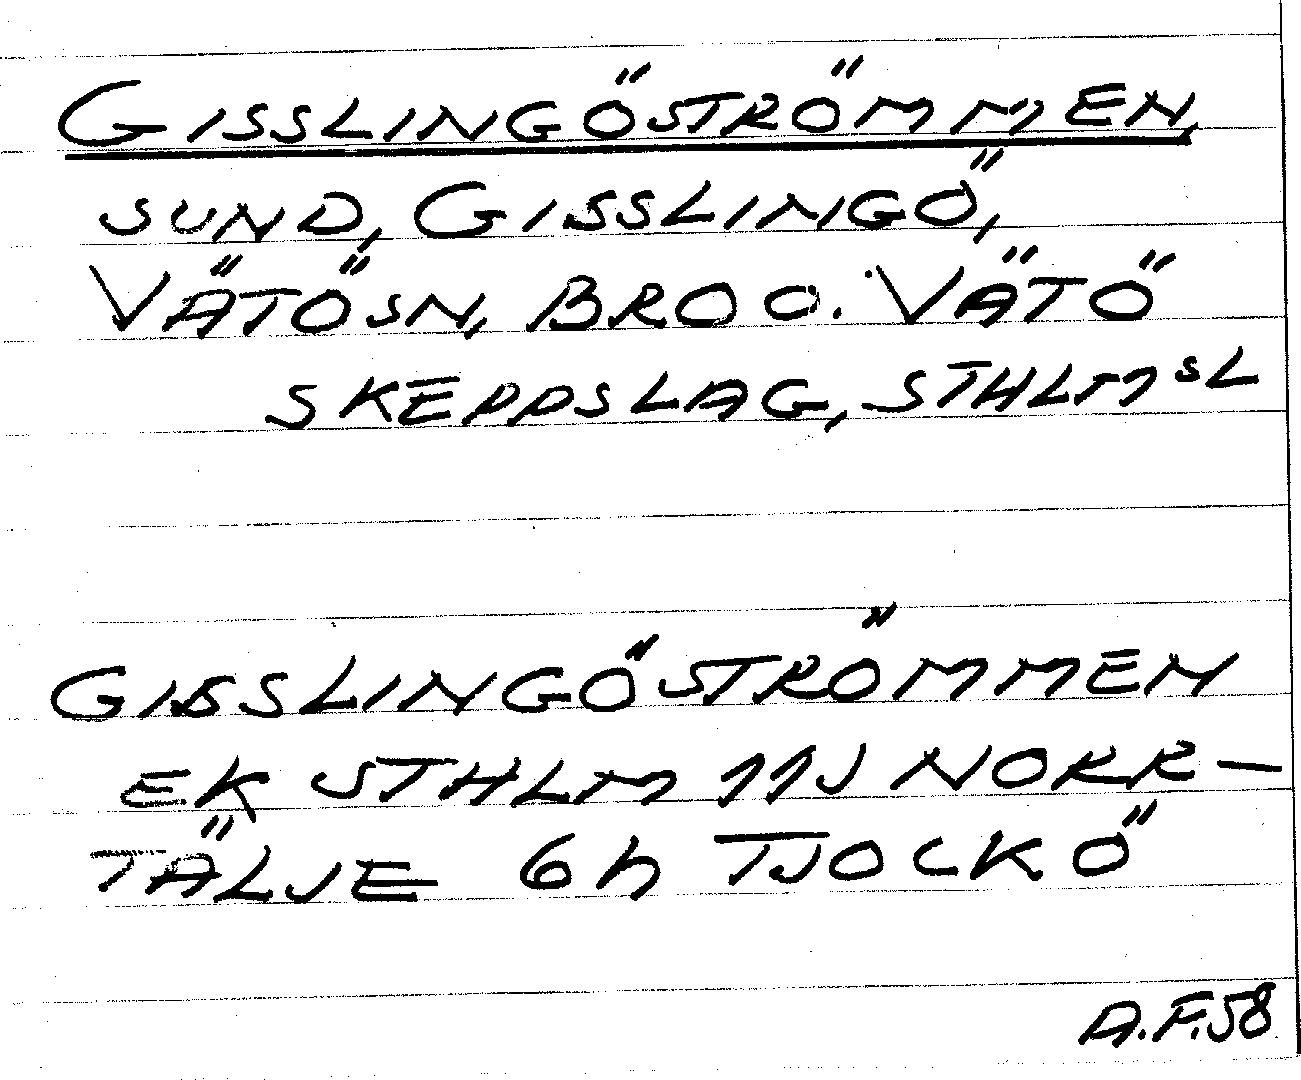 GISSLINGÖSTRÖMMEN,
SUND, GISSLINGÖ,
VÄTÖSN, BRO O. VÄTÖ
SKEPPSLAG, STHLMSL
GISSLINGÖSTRÖMMEN
EK STHLM 11J NORR-
TÄLJE 6h TJOCKÖ
A.F.58